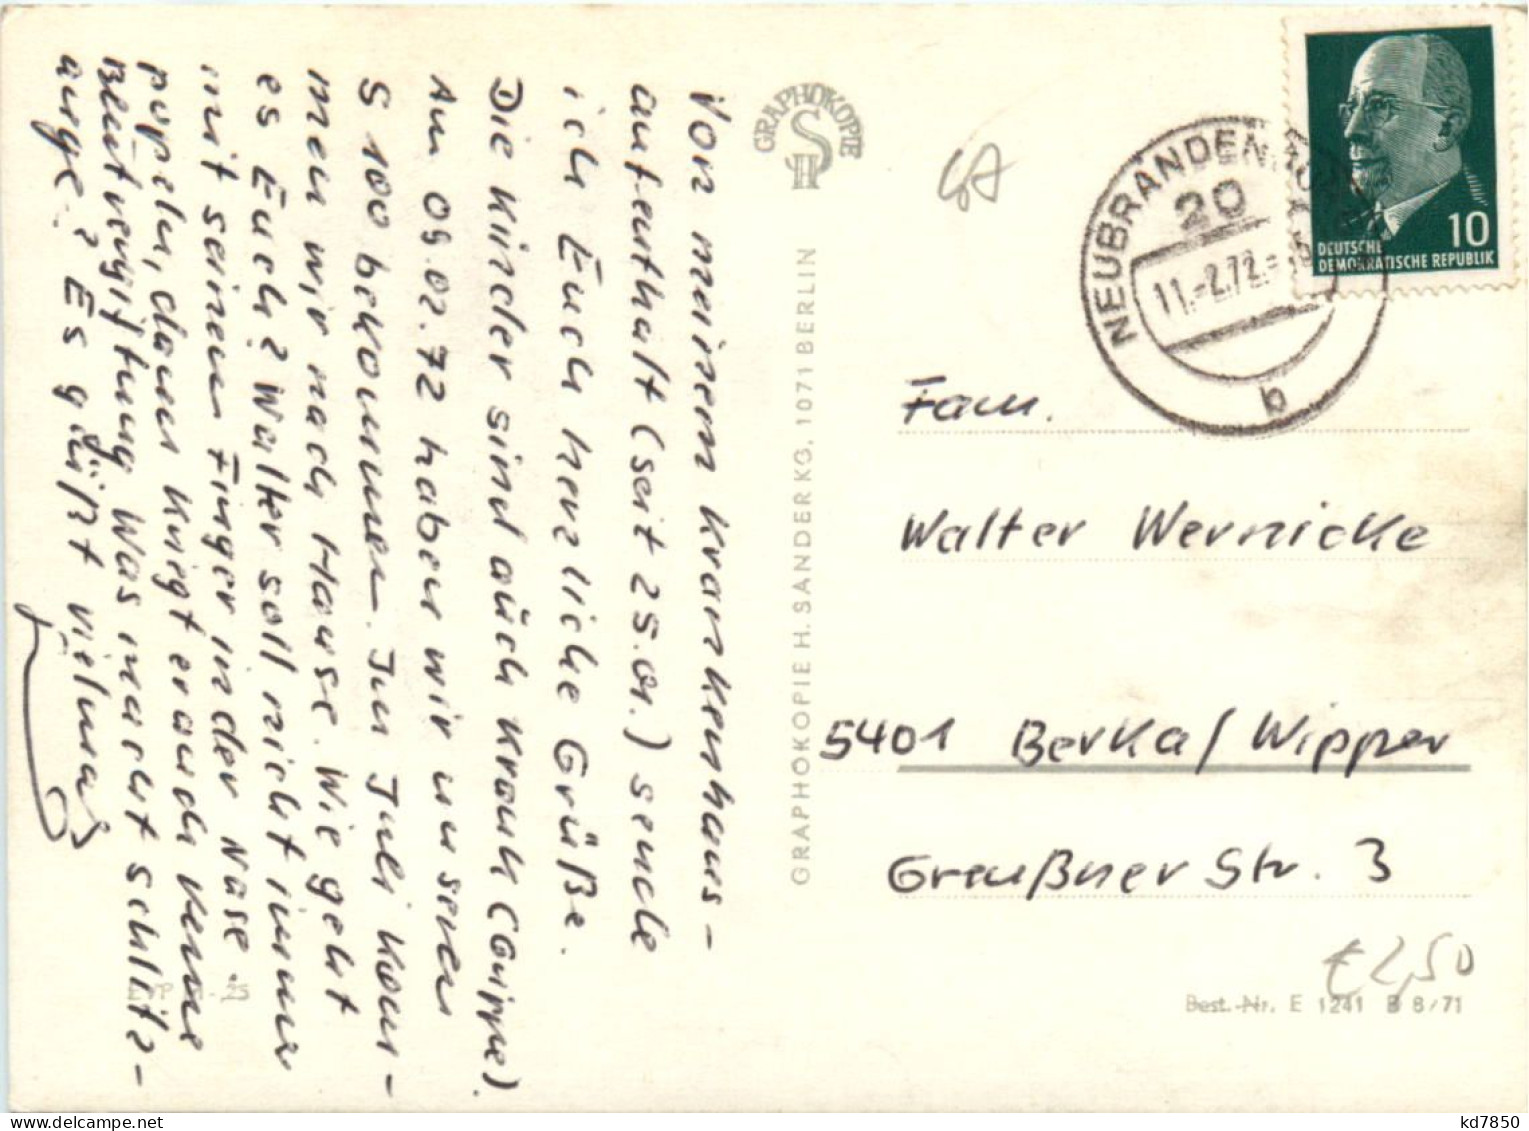 Von meinem Krankenhaus-
aufenthalt (seit 25.01.) sende
ich Euch herzliche Grüße.
Die Kinder sind auch krank (Grippe).
Am 09.02.72 haben wir unseren
S 100 bekommen. Im Juli kom-
men wir nach Hause. Wie geht
es Euch? Walter soll nicht immer
mit seinem Finger in der Nase
popeln, dann kriegt er auch keine
Blutvergiftung. Was macht schlitz-
auge? Es grüßt vielmals
GRAPHOKOPIE
H S
GRAPHOKOPIE H. SANDER KG. 1071 BERLIN
NEUBRANDENBURG
20
11.-2.72.-
b
DEUTSCHE
DEMOKRATISCHE REPUBLIK
10
Fam.
Walter Wernicke
5401 Berka/Wipper
Greußner Str. 3
€ 2,50
Best.-Nr. E 1241 B 8/71
kd7850